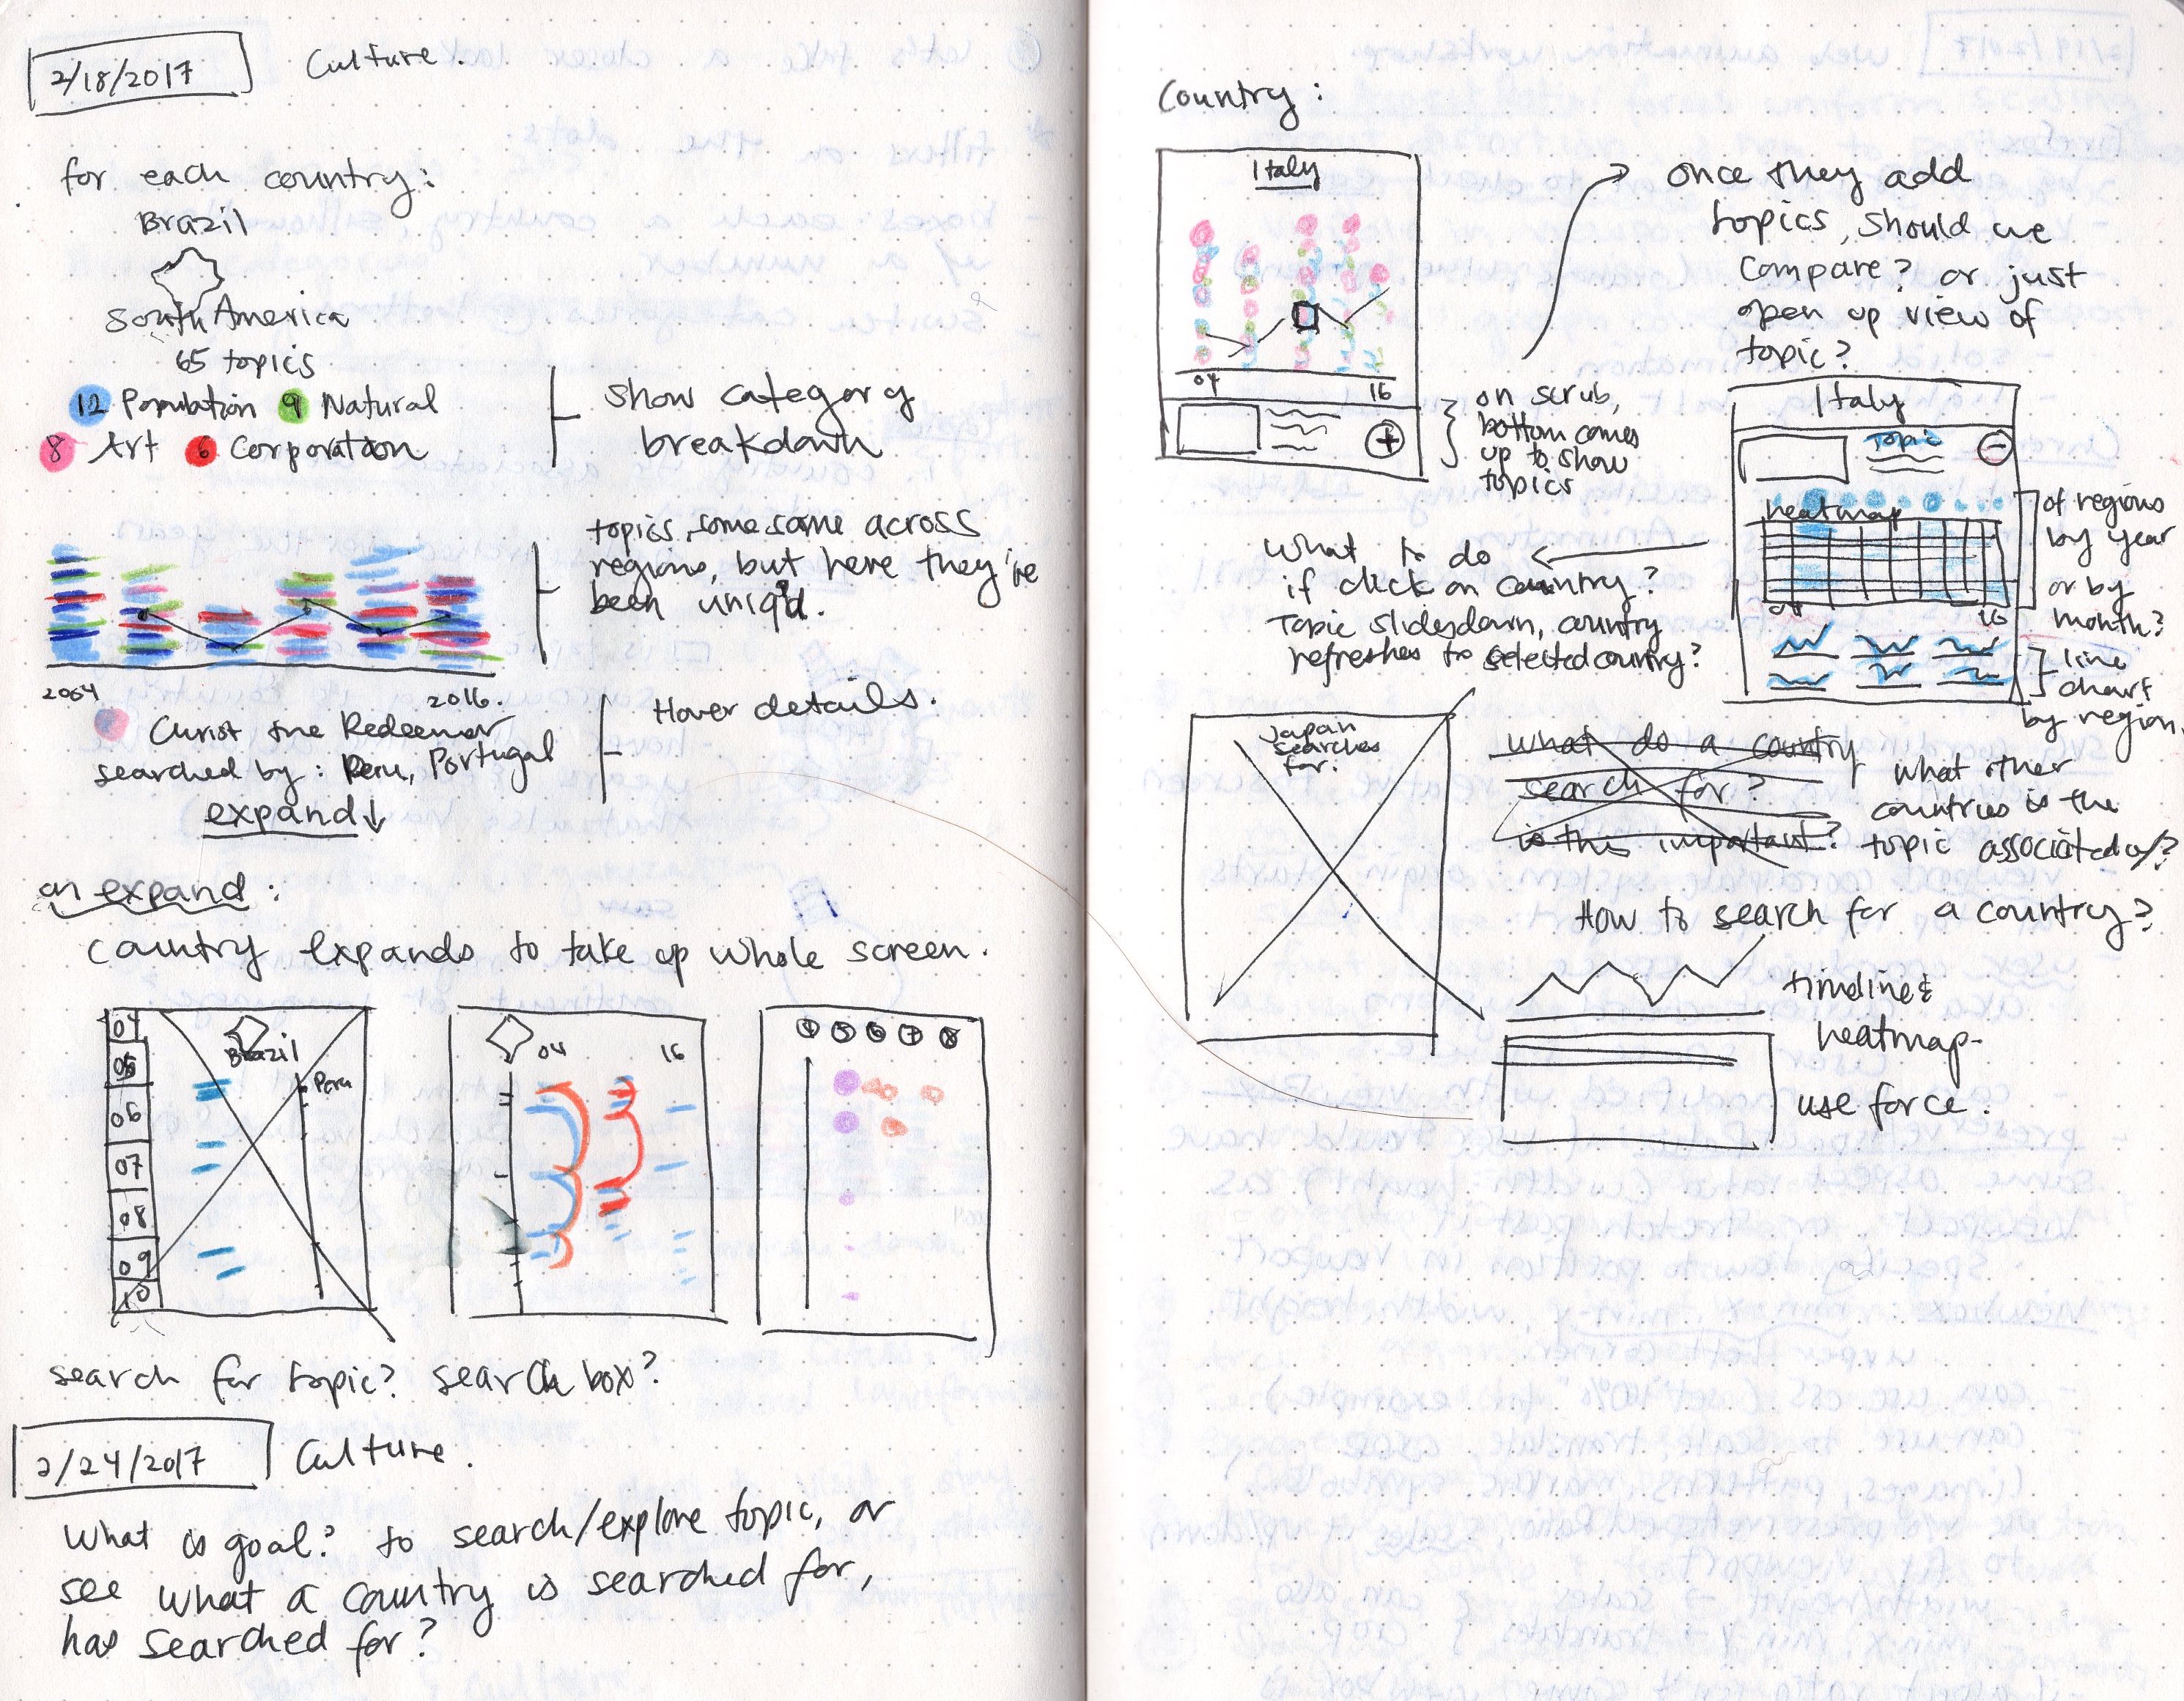 2/18/2017
Culture.
for each country:
Brazil
South America
65 topics
12 Population 9 Natural
8 Art 6 Corporation
show category
breakdown
topics, some same across
regions, but here they're
been uniq'd.
2004
2016.
Christ the Redeemer
searched by: Peru, Portugal
expand↓
Hover details.
on expand:
country expands to take up whole screen.
04
05
06
07
08
09
10
Brazil
Peru
04
16
4 5 6 7 8
search for topic? search box?
2/24/2017
Culture.
What is goal? to search/explore topic, or
see what a country is searched for,
has searched for?
Country:
Italy
04
16
+
once they add
topics, should we
compare? or just
open up view of
topic?
on scrub,
bottom comes
up to show
topics
Italy
Topic
−
heatmap
04
16
of regions
by year
or by
month?
line
chart
by region.
What to do
if click on country?
Topic slides down, country
refreshes to selected country?
Japan
searches
for.
what do a country
search for?
is this important?
what other
countries is the
topic associated w/?
How to search for a country?
timeline &
heatmap-
use force.